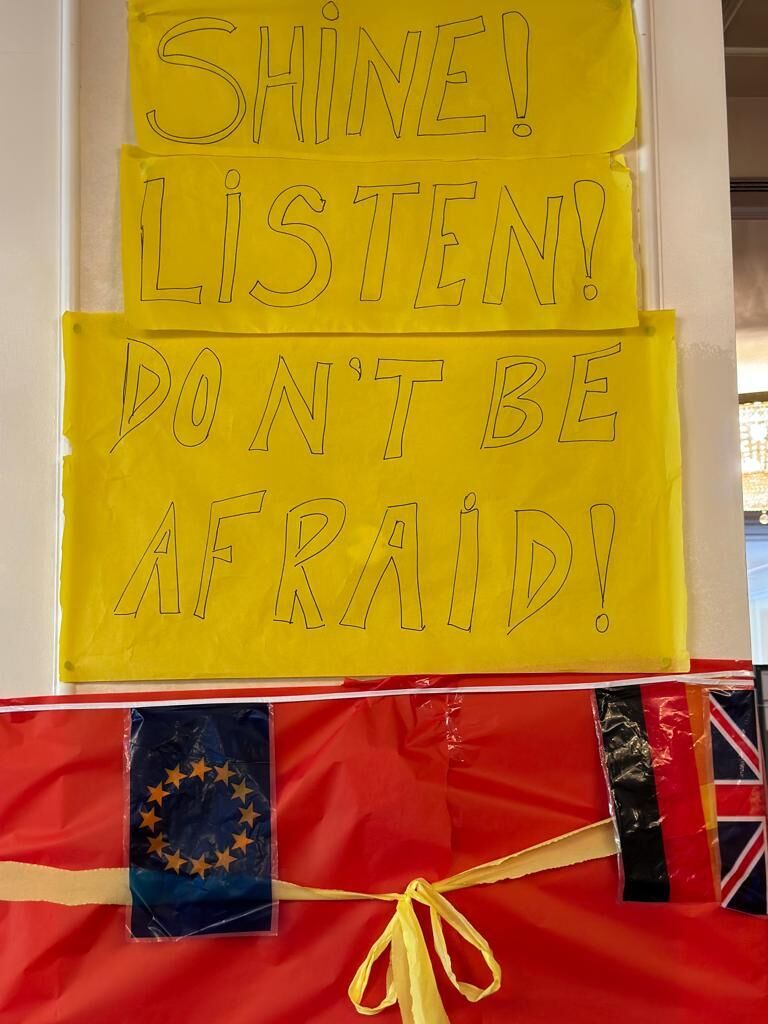 SHiNE!
LiSTEN!
DON'T BE
AFRAiD!